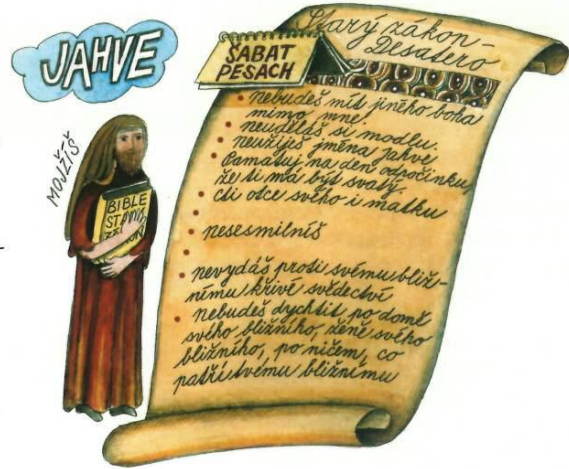 JAHVE
MOJŽÍŠ
BIBLE
STARÝ
ŠABAT
PESACH
Starý zákon -
Desatero
• nebudeš mít jiného boha
mimo mne!
• neuděláš si modlu.
• neužiješ jména Jahve
• Pamatuj na den odpočinku,
že ti má být svatý.
• cti otce svého i matku
•
• nesesmilníš
•
• nevydáš proti svému bliž-
nímu křivé svědectví
• nebudeš dychtit po domě
svého bližního, ženě svého
bližního, po ničem, co
patří tvému bližnímu